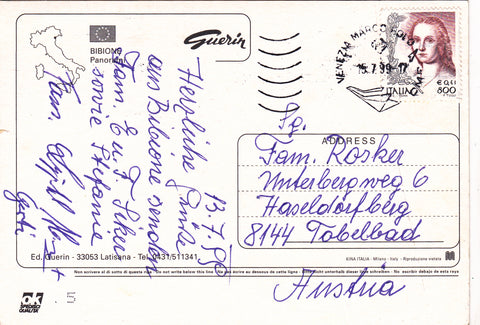 BIBIONE
Panor
Guerin
13.7.99
Herzliche Grüße
aus Bibione senden
Fam. E u. F. Siker
sowie Stefanie
Fam.
Gerti
Ed. Guerin - 33053 Latisana - Tel. 0431/511341
VENEZIA MARCO POLO
15.7.99-17
ITALIA
800
ADDRESS
Sg.
Fam. Rosker
Unterbergweg 6
Haseldorfberg
8144 Tobelbad
Austria
EINA ITALIA - Milano - Italy - Riproduzione vietata
Non scrivere al di sotto di questa
not write below this line
écrire au-dessous de cette ligne
unterhalb dieser Linie schreiben - No escribir debajo de esta raya
ok
SPEDISCI
QUALITA'
5